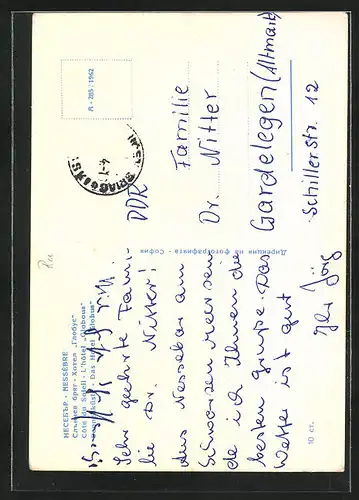 НЕСЕБЪР - NESSÈBRE
Слънчев бряг - Хотел „Глобус"
Côte du Soleil - L'hôtel „Globous"
Das Hotel „Globus"
Sehr geehrte Fami-
lie Dr. Nitter!
Aus Nessebar am
Schwarzen Meer sen
de ich Ihnen die
besten Grüße. Das
Wetter ist gut
Ihr Jörg
10 ст.
Дирекция на фотографията - София
Я - 285 / 1962
DDR
Familie
Dr. Nitter
Gardelegen (Altmark)
Schillerstr. 12